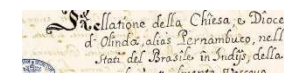 Rellatione della Chiesa, e Dioce
d'Olinda, alias Pernambuco, nell
Stati del Brasile in Indijs, della